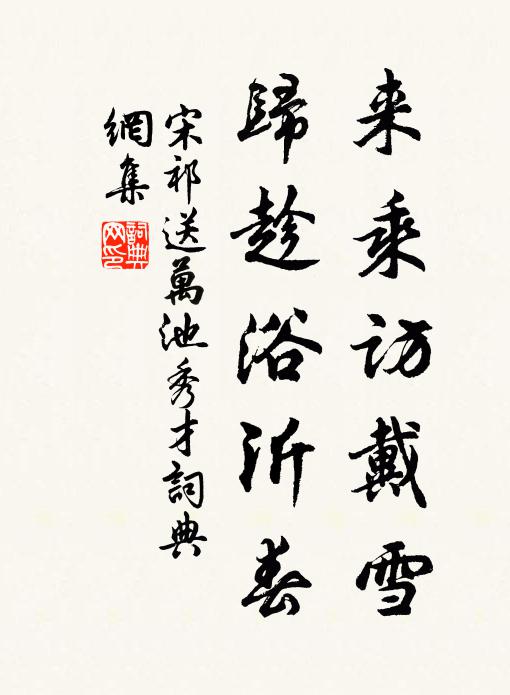 来乘訪戴雪
歸趁浴沂春
宋祁送萬池秀才詞典
網集
詞典
网印